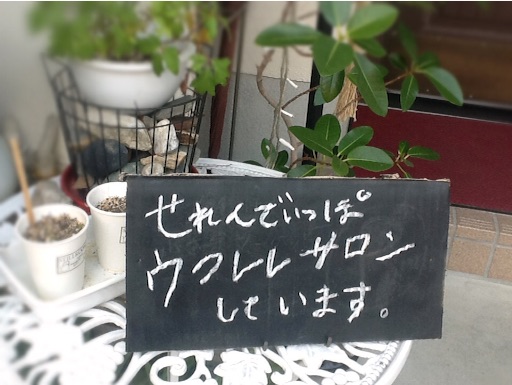 せれんでぃっぽ
ウクレレサロン
しています。